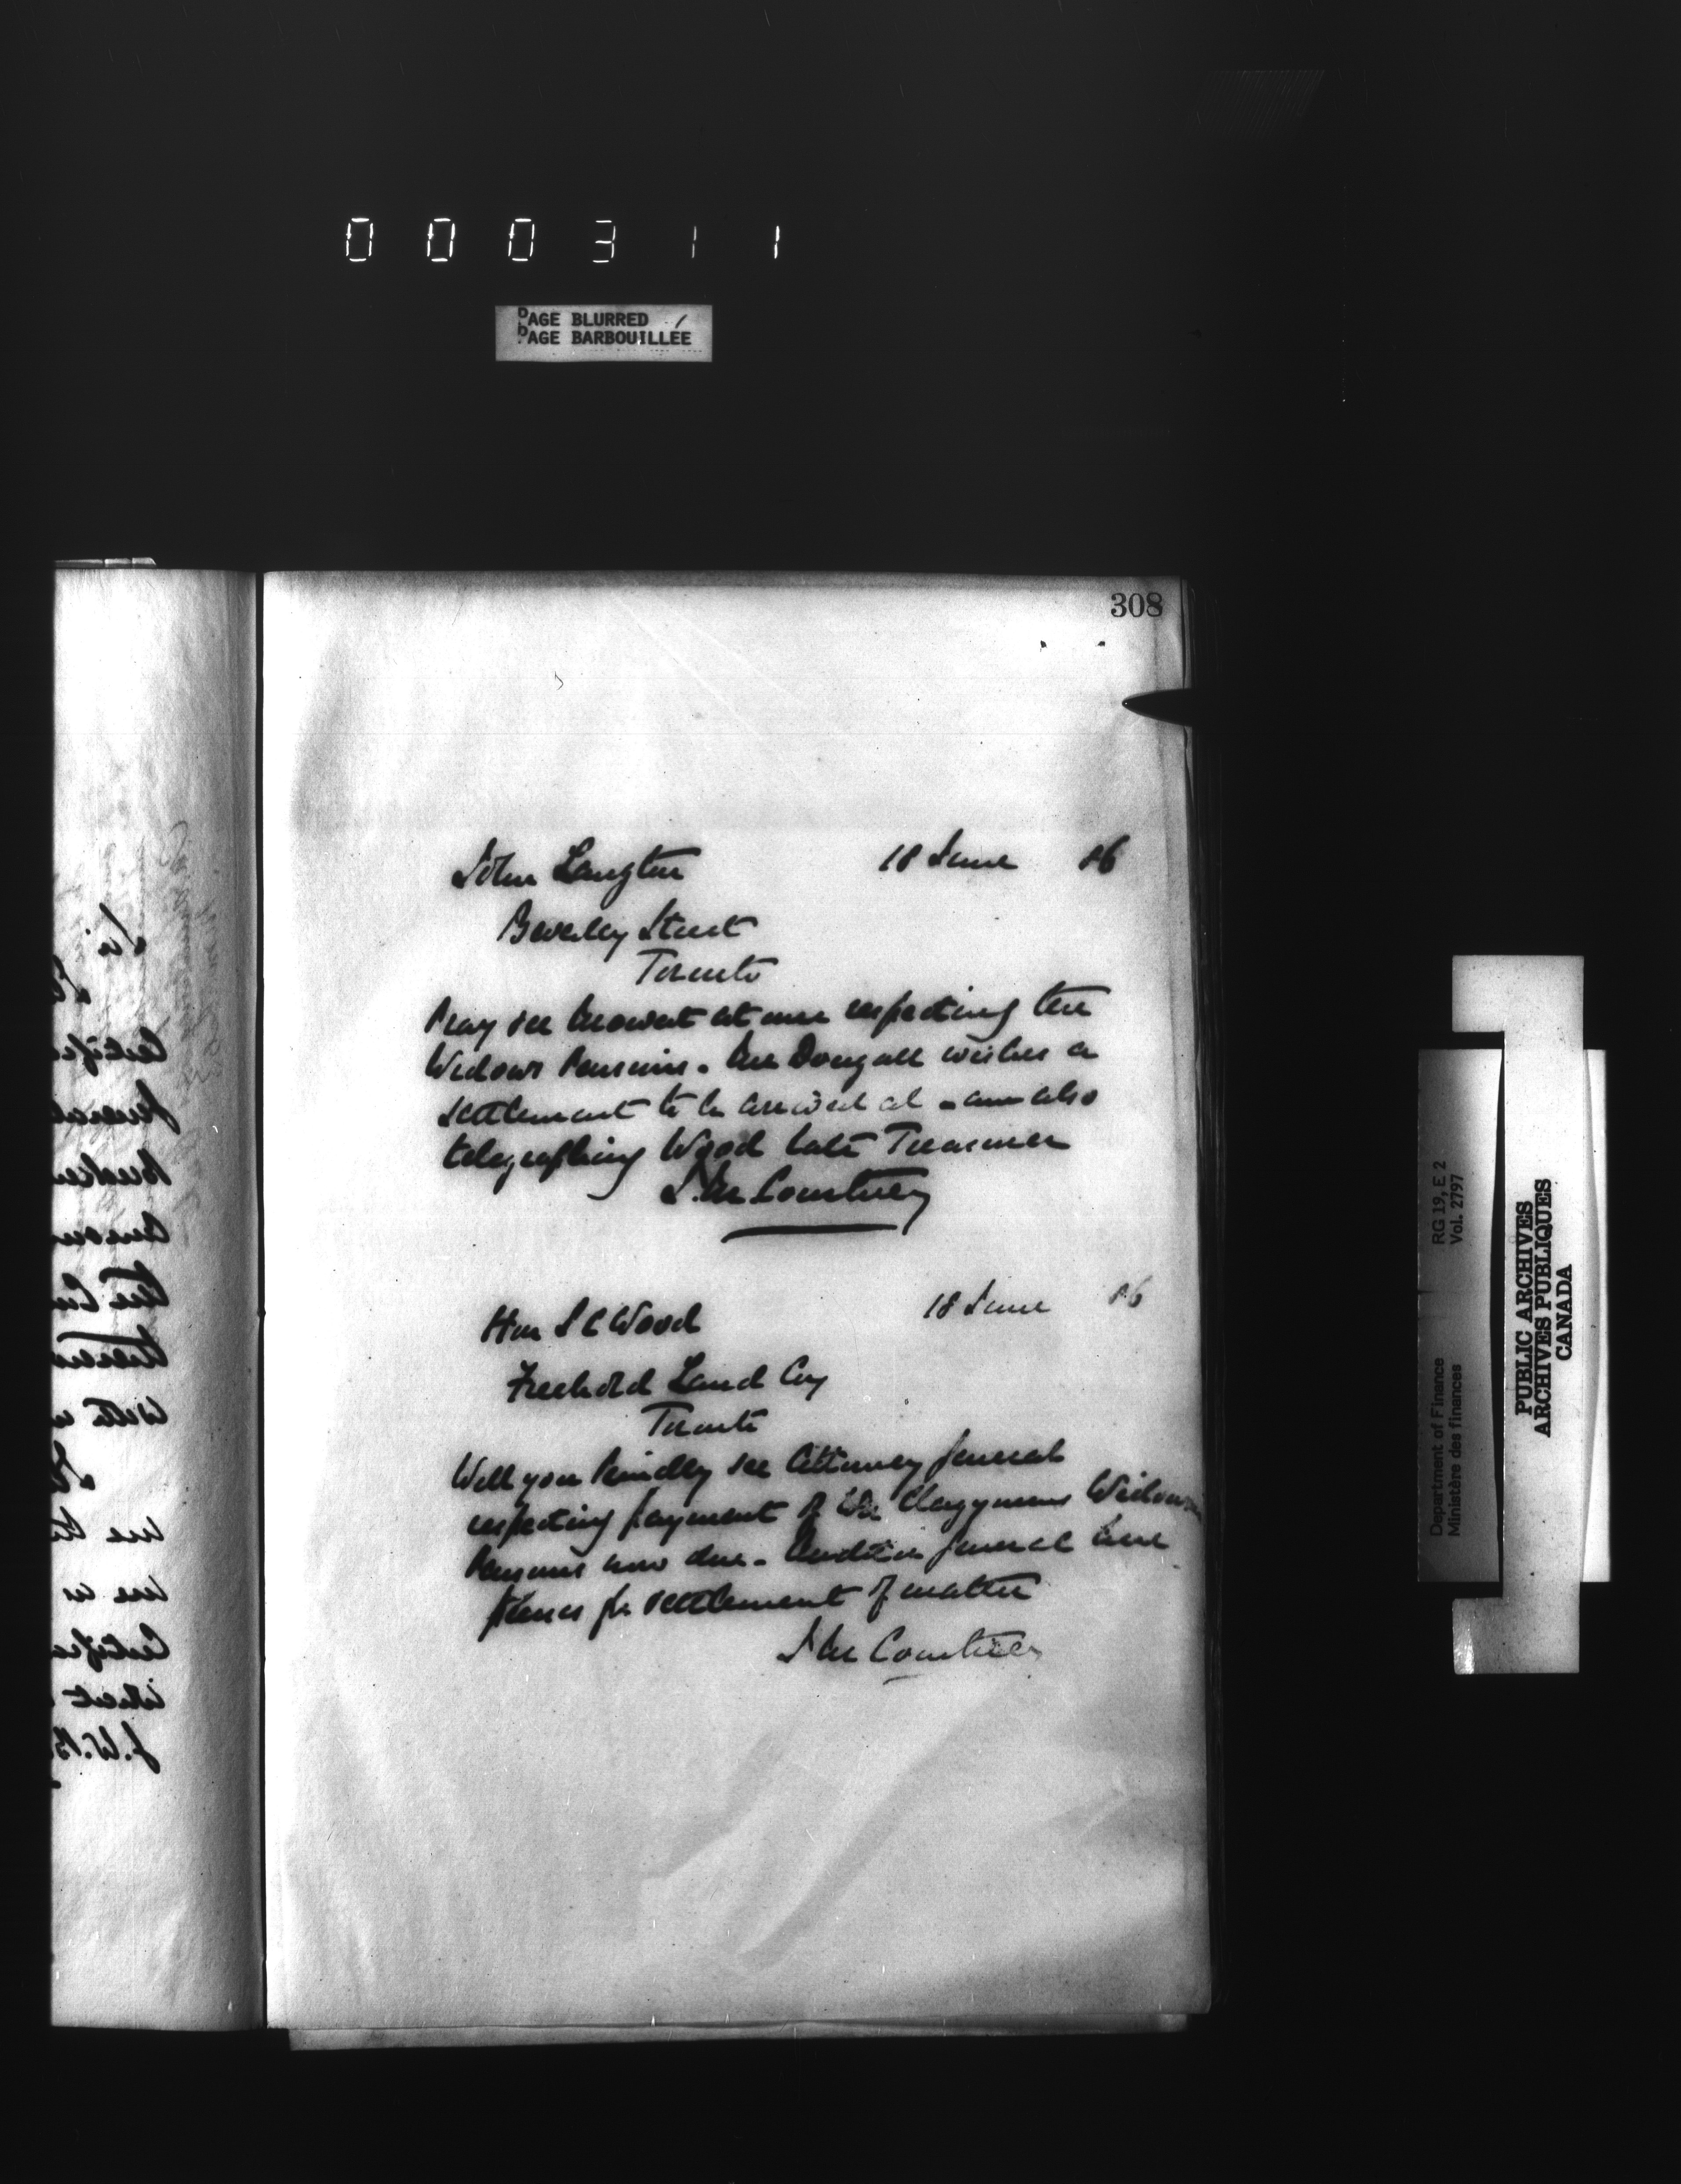 000311
PAGE BLURRED
PAGE BARBOUILLÉE
308
John Langton 18 June 86
Beverley Street
Toronto
Pray see Mowat at once respecting the
Widows Pensions. McDougall wishes a
settlement to be arrived at - am also
telegraphing Wood late Treasurer
J. M. Courtney
Hon S C Wood 18 June 86
Freehold Land Coy
Toronto
Will you kindly see Attorney General
respecting payment of the Clergymens Widows
Pensions now due. Auditor General here
presses for settlement of matter
J M Courtney
Department of Finance RG 19, E 2
Ministère des finances Vol. 2797
PUBLIC ARCHIVES
ARCHIVES PUBLIQUES
CANADA